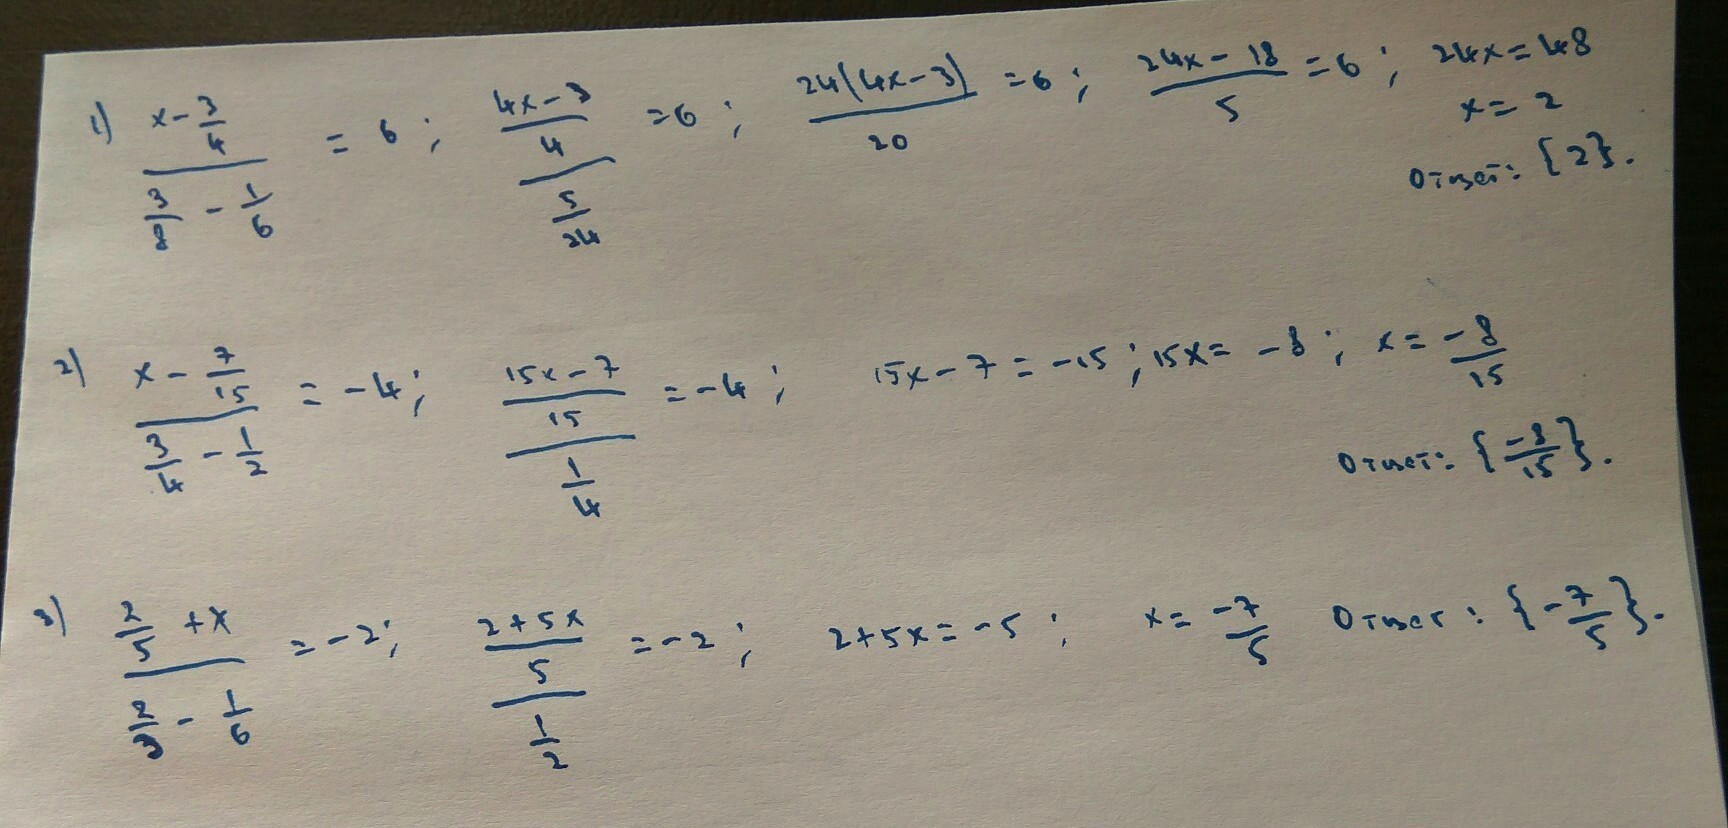 1) (x - 3/4)/(3/8 - 1/6) = 6; ((4x-3)/4)/(5/24) = 6; 24(4x-3)/20 = 6; (24x - 18)/5 = 6; 24x = 48
x = 2
Ответ: {2}.
2) (x - 7/15)/(3/4 - 1/2) = -4; ((15x-7)/15)/(1/4) = -4; 15x - 7 = -15; 15x = -8; x = -8/15
Ответ: {-8/15}.
3) (2/5 + x)/(2/3 - 1/6) = -2; ((2+5x)/5)/(1/2) = -2; 2+5x = -5; x = -7/5 Ответ: {-7/5}.